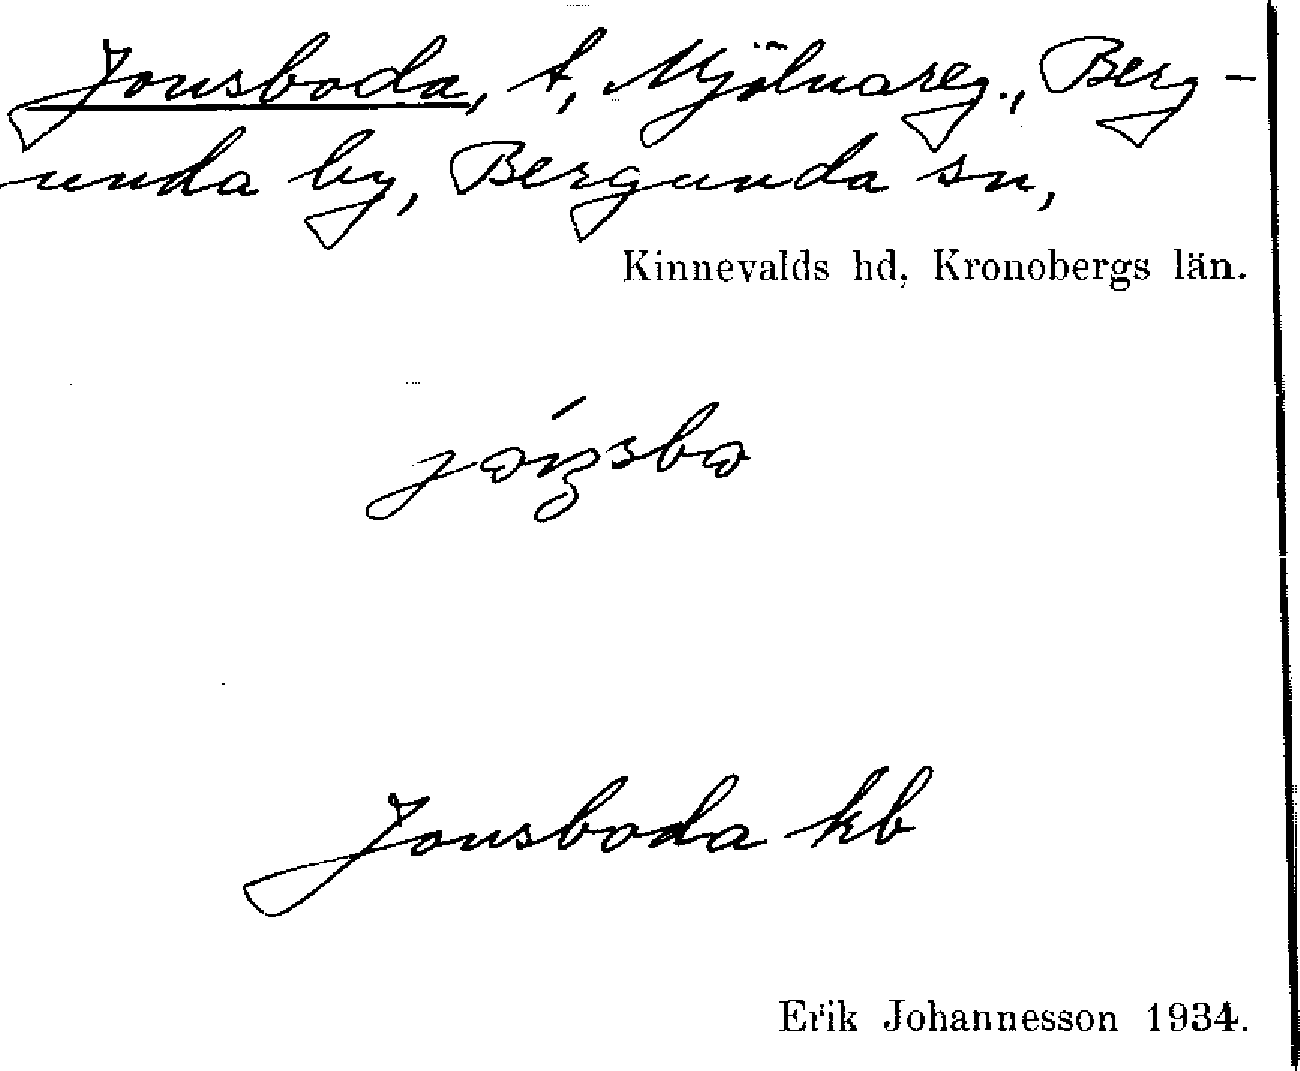 Jonsboda, t, Mjölnareg., Berg-
unda by, Bergunda sn,
Kinnevalds hd, Kronobergs län.
Jonsboda kb
Erik Johannesson 1934.